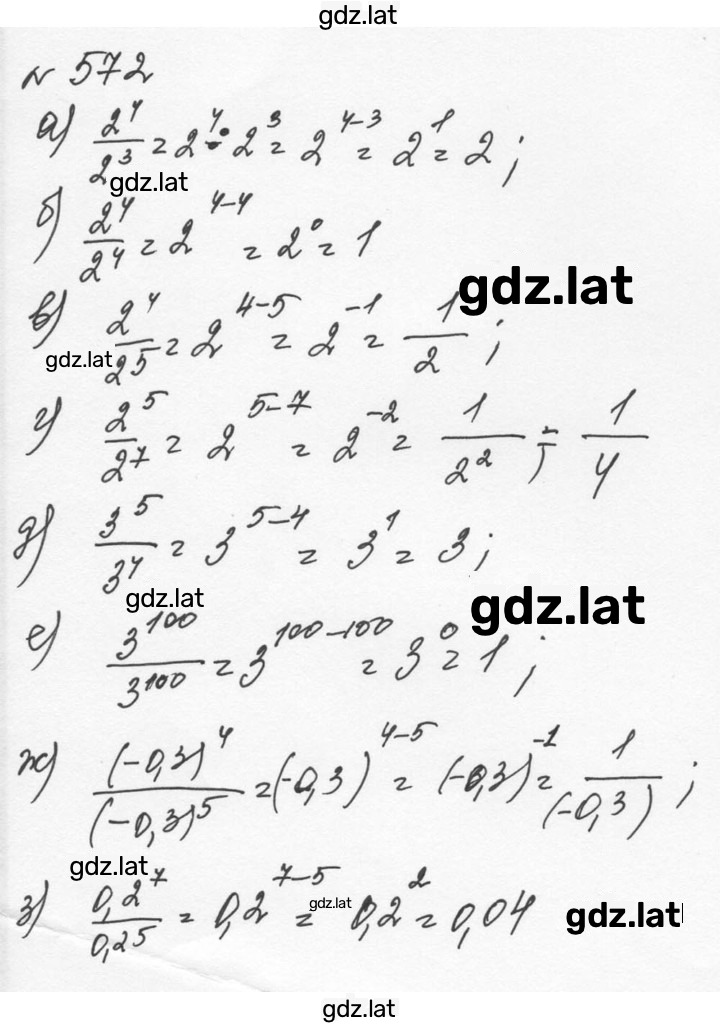 gdz.lat
№ 572
а) 2^4/2^3 = 2^4 : 2^3 = 2^(4-3) = 2^1 = 2;
gdz.lat
б) 2^4/2^4 = 2^(4-4) = 2^0 = 1
gdz.lat
в) 2^4/2^5 = 2^(4-5) = 2^(-1) = 1/2;
gdz.lat
г) 2^5/2^7 = 2^(5-7) = 2^(-2) = 1/2^2; = 1/4
д) 3^5/3^4 = 3^(5-4) = 3^1 = 3;
gdz.lat
gdz.lat
е) 3^100/3^100 = 3^(100-100) = 3^0 = 1;
ж) (-0,3)^4/(-0,3)^5 = (-0,3)^(4-5) = (-0,3)^(-1) = 1/(-0,3);
gdz.lat
з) 0,2^7/0,2^5 = 0,2^(7-5) = 0,2^2 = 0,04
gdz.lat
gdz.lat
gdz.lat